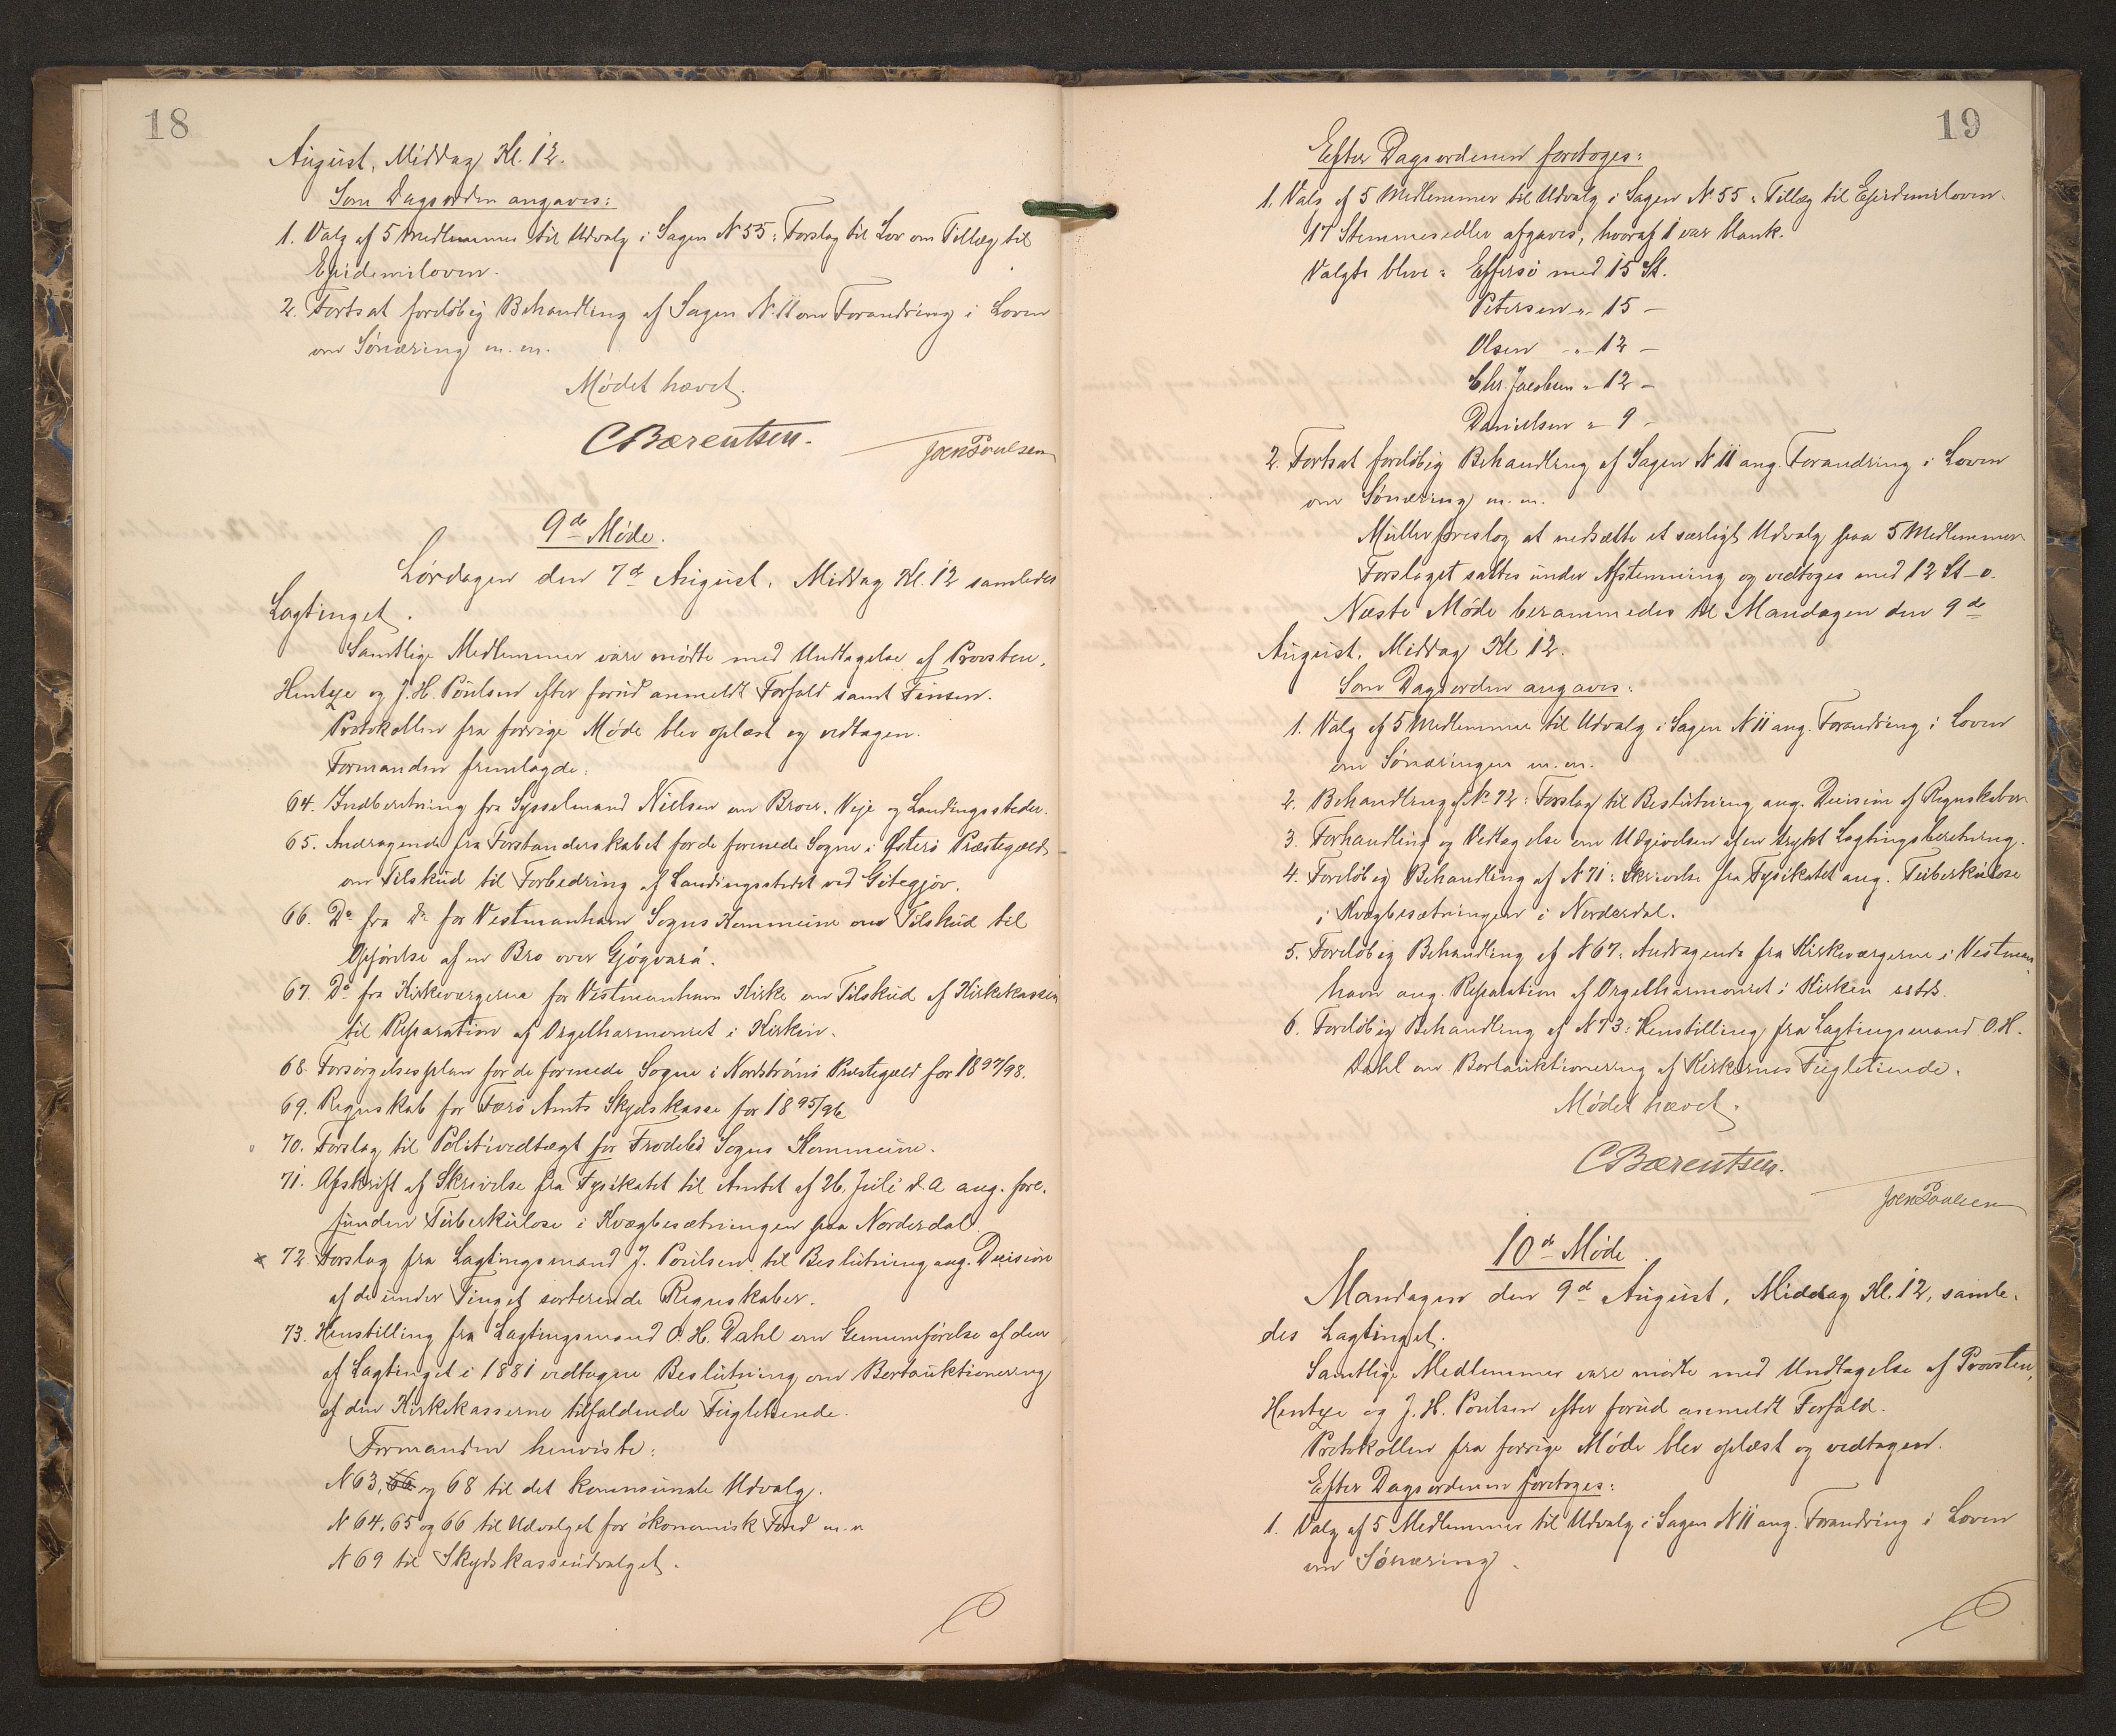 18
August, Middag Kl. 12.
Som Dagsorden angaves:
1. Valg af 5 Medlemmer til Udvalg i Sagen N 55: Forslag til Lov om Tillæg til
Epidemiloven.
2. Fortsat foreløbig Behandling af Sagen N. 11 om Forandring i Loven
om Sønæring m. m.
Mødet hævet.
CBærentsen.
Joen Poulsen
9de Møde.
Lørdagen den 7d August, Middag Kl. 12 samledes
Lagtinget.
Samtlige Medlemmer vare mødte med Undtagelse af Provsten,
Hentze og J. H. Poulsen efter forud anmeldt Forfald samt Finsen.
Protokollen fra forrige Møde blev oplæst og vedtagen.
Formanden fremlagde:
64. Indberetning fra Sysselmand Nielsen om Broer, Veje og Landingssteder.
65. Andragende fra Forstanderskabet for de forenede Sogne i Østerø Præstegjeld
om Tilskud til Forbedring af Landingsstedet ved Gøtegjov.
66. Do fra Do for Vestmanhavn Sogns Kommune om Tilskud til
Opførelse af en Bro over Gjógvará.
67. Do fra Kirkeværgerne for Vestmanhavn Kirke om Tilskud af Kirkekassen
til Reparation af Orgelharmoniet i Kirken.
68. Forsørgelsesplan for de forenede Sogne i Nordstrømø Præstegæld for 1897/98.
69. Regnskab for Færø Amts Skydskasse for 1895/96
70. Forslag til Politivedtægt for Frodebø Sogns Kommune.
71. Afskrift af Skrivelse fra Fysikatet til Amtet af 26. Juli d. A. ang. fore-
funden Tuberkulose i Kvægbesætningen paa Norderdal.
x 72. Forslag fra Lagtingsmand J. Poulsen til Beslutning ang. Decision
af de under Tinget sorterende Regnskaber.
73. Henstilling fra Lagtingsmand O. H. Dahl om Gennemførelse af den
af Lagtinget i 1881 vedtagne Beslutning om Bortauktionering
af den Kirkekasserne tilfaldende Fugletiende.
Formanden henviste:
N 63, 66 og 68 til det kommunale Udvalg.
N 64, 65 og 66 til Udvalget for økonomisk Fond m. m
N 69 til Skydskasseudvalget.
19
Efter Dagsordenen foretoges:
1. Valg af 5 Medlemmer til Udvalg i Sagen N. 55: Tillæg til Epidemiloven.
17 Stemmesedler afgaves, hvoraf 1 var blank.
Valgte bleve: Effersø med 15 St.
Petersen " 15 –
Olsen " 12 –
Chr. Jacobsen " 12 –
Danielsen " 9 –
2. Fortsat foreløbig Behandling af Sagen N 11 ang. Forandring i Loven
om Sønæring m. m.
Müller foreslog at nedsætte et særligt Udvalg paa 5 Medlemmer
Forslaget sattes under Afstemning og vedtoges med 12 St – 0.
Næste Møde berammedes til Mandagen den 9de
August, Middag Kl 12.
Som Dagsorden angaves:
1. Valg af 5 Medlemmer til Udvalg i Sagen N 11 ang. Forandring i Loven
om Sønæringen m. m.
2. Behandling af N. 72: Forslag til Beslutning ang. Decision af Regnskaber
3. Forhandling og Vedtagelse om Udgivelsen af en trykt Lagtingsberetning.
4. Foreløbig Behandling af N 71: Skrivelse fra Fysikatet ang. Tuberkulose
i Kvægbesætningen i Norderdal.
5. Foreløbig Behandling af N 67: Andragende fra Kirkeværgerne i Vestman-
havn ang. Reparation af Orgelharmoniet i Kirken sstds.
6. Foreløbig Behandling af N 73: Henstilling fra Lagtingsmand O. H.
Dahl om Bortauktionering af Kirkernes Fugletiende.
Mødet hævet.
CBærentsen.
Joen Poulsen
10de Møde
Mandagen den 9d August, Middag Kl. 12, samle-
des Lagtinget.
Samtlige Medlemmer vare mødte med Undtagelse af Provsten,
Hentze og J. H. Poulsen efter forud anmeldt Forfald.
Protokollen fra forrige Møde blev oplæst og vedtagen.
Efter Dagsordenen foretoges:
1. Valg af 5 Medlemmer til Udvalg i Sagen N 11 ang. Forandring i Loven
om Sønæring.